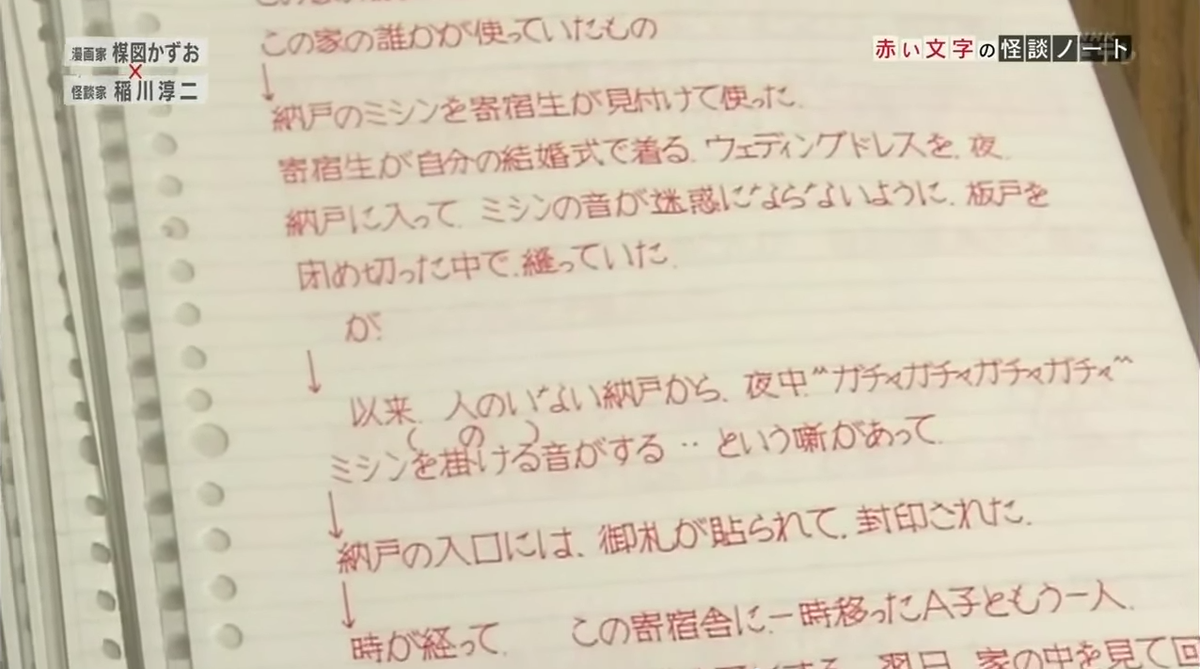 漫画家 楳図かずお
×
怪談家 稲川淳二
赤い文字の怪談ノート
この家の誰かが使っていたもの
↓
納戸のミシンを寄宿生が見付けて使った、
寄宿生が自分の結婚式で着る、ウェディングドレスを、夜、
納戸に入って、ミシンの音が迷惑にならないように、板戸を
閉め切った中で、縫っていた、
が、
↓
以来、人のいない納戸から、夜中、〝ガチャガチャガチャガチャ〞
(の)
ミシンを掛ける音がする‥という噺があって、
↓
納戸の入口には、御札が貼られて、封印された、
↓
時が経って、 この寄宿舎に、一時移ったA子ともう一人、
翌日、家の中を見て回